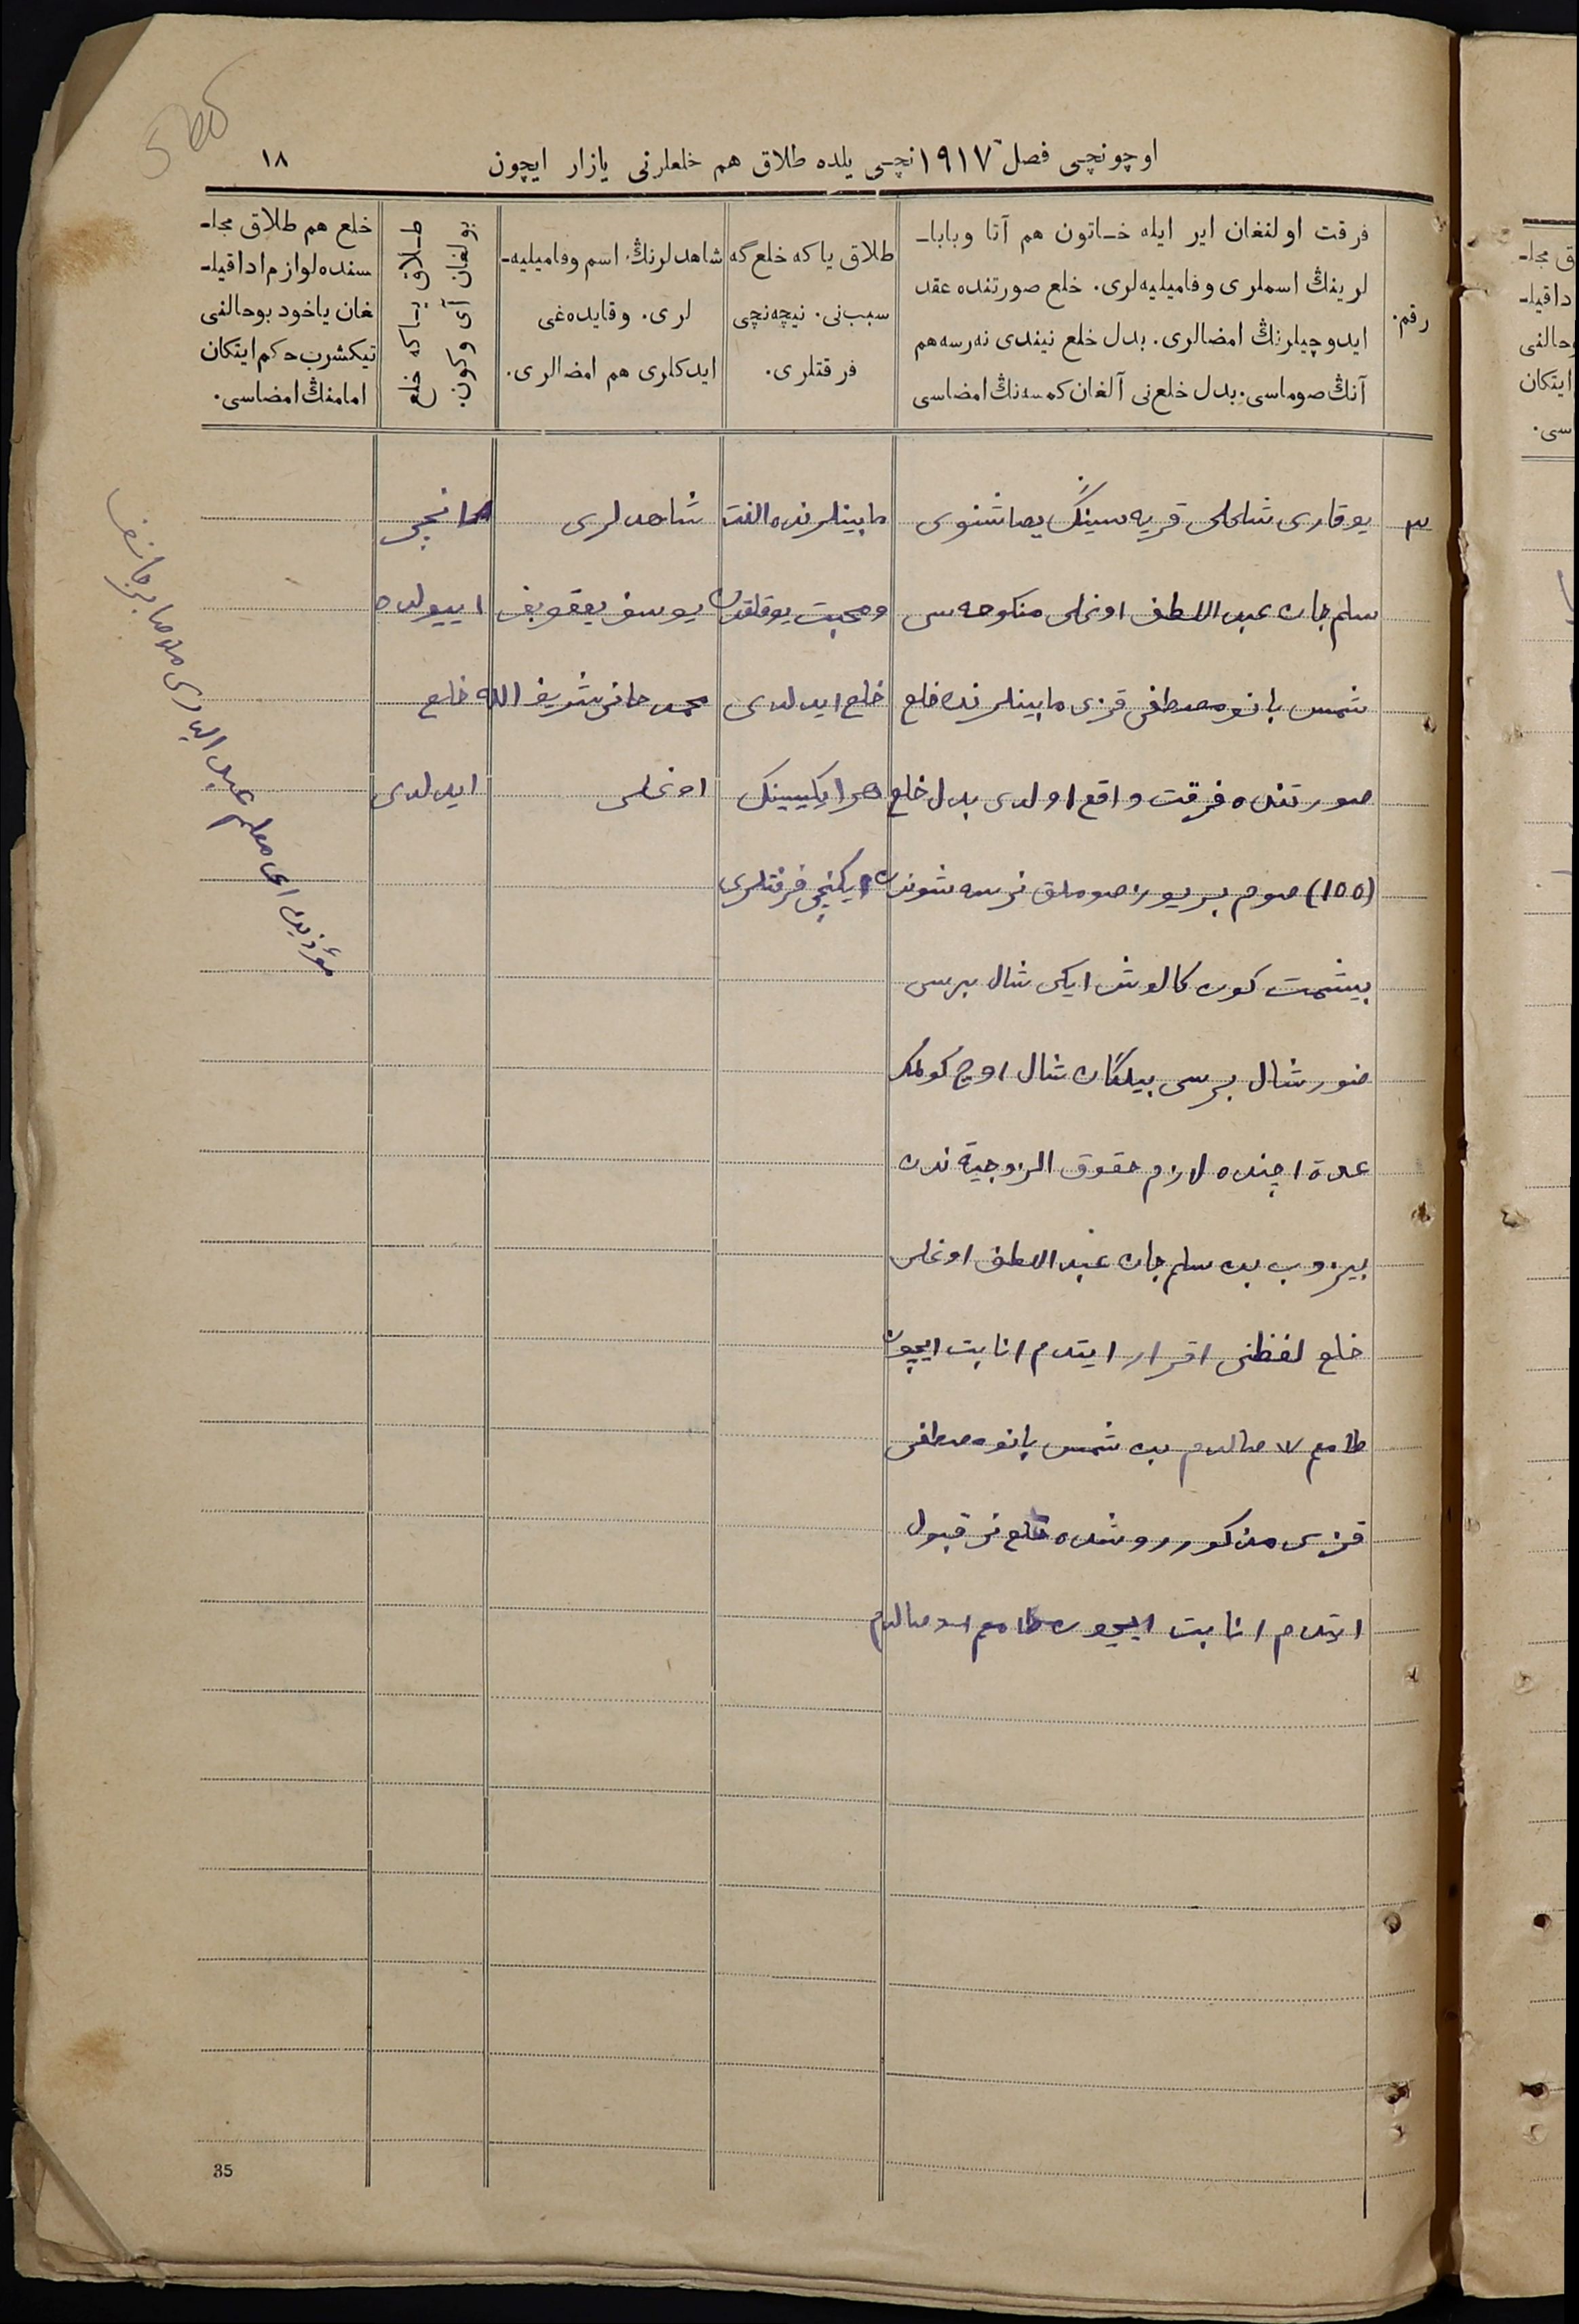 اوچونچی فصل ١٩١٧نچی یلده طلاق هم خلعلرنی یازار ایچون
١٨
رقم.
فرقت اولنغان ایر ایله خاتون هم آتا وبابا-
لرینڭ اسملری وفامیلیه‌لری. خلع صورتنده عقد
ایدوچیلرنڭ امضالری. بدل خلع نیندی نه‌رسه هم
آنڭ صوماسی. بدل خلع‌نی آلغان کمسه‌نڭ امضاسی
طلاق یا که خلع گه
سبب‌نی. نیچه‌نچی
فرقتلری.
شاهدلرنڭ اسم وفامیلیه-
لری. وقایده‌غی
ایدکلری هم امضالری.
طلاق یا که خلع
بولغان آی و کون.
خلع هم طلاق مجا-
سنده لوازم ادا قیلـ
غان یاخود بوحالنی
تیکشرب حکم ایتکان
امامنڭ امضاسی.
٣
یوقاری شلحلی قریه سینڭ یصاشنوی
سلم جان عبد اللطف اوغلی منکوحه سی
شمس بانو مصطفی قزی مابینلرنده خلع
صورتنده فرقت واقع اولدی بدل خلع
(100) صوم بریوز صوملق نرسه شوندن
بیشمت کون کالوش ایکی شال برسی
ضور شال برسی بیلگان شال اوچ کولمک
عدة اچنده لازم حقوق الزوجیة ندن
بیزوب بن سلم جان عبد اللطف اوغلی
خلع لفظنی اقرار ایتدم اثابت ایچون
طامع صالدم بن شمس بانو مصطفی
قزی مذکور روشده خلع نی قبول
ایتدم اثابت ایچون طامع صالدم
مابینلرنده الفت
ومحبت یوقلقدن
خلع ایدلدی
هر ایکیسینک
ایکنچی فرقتلری
شاهدلری
یوسف یعقوبف
محمد جان شریف الله
اوغلی
نچی
اییولده
خلع
ایدلدی
مؤذن معلم عبد الباری ملا صابرجانف
35